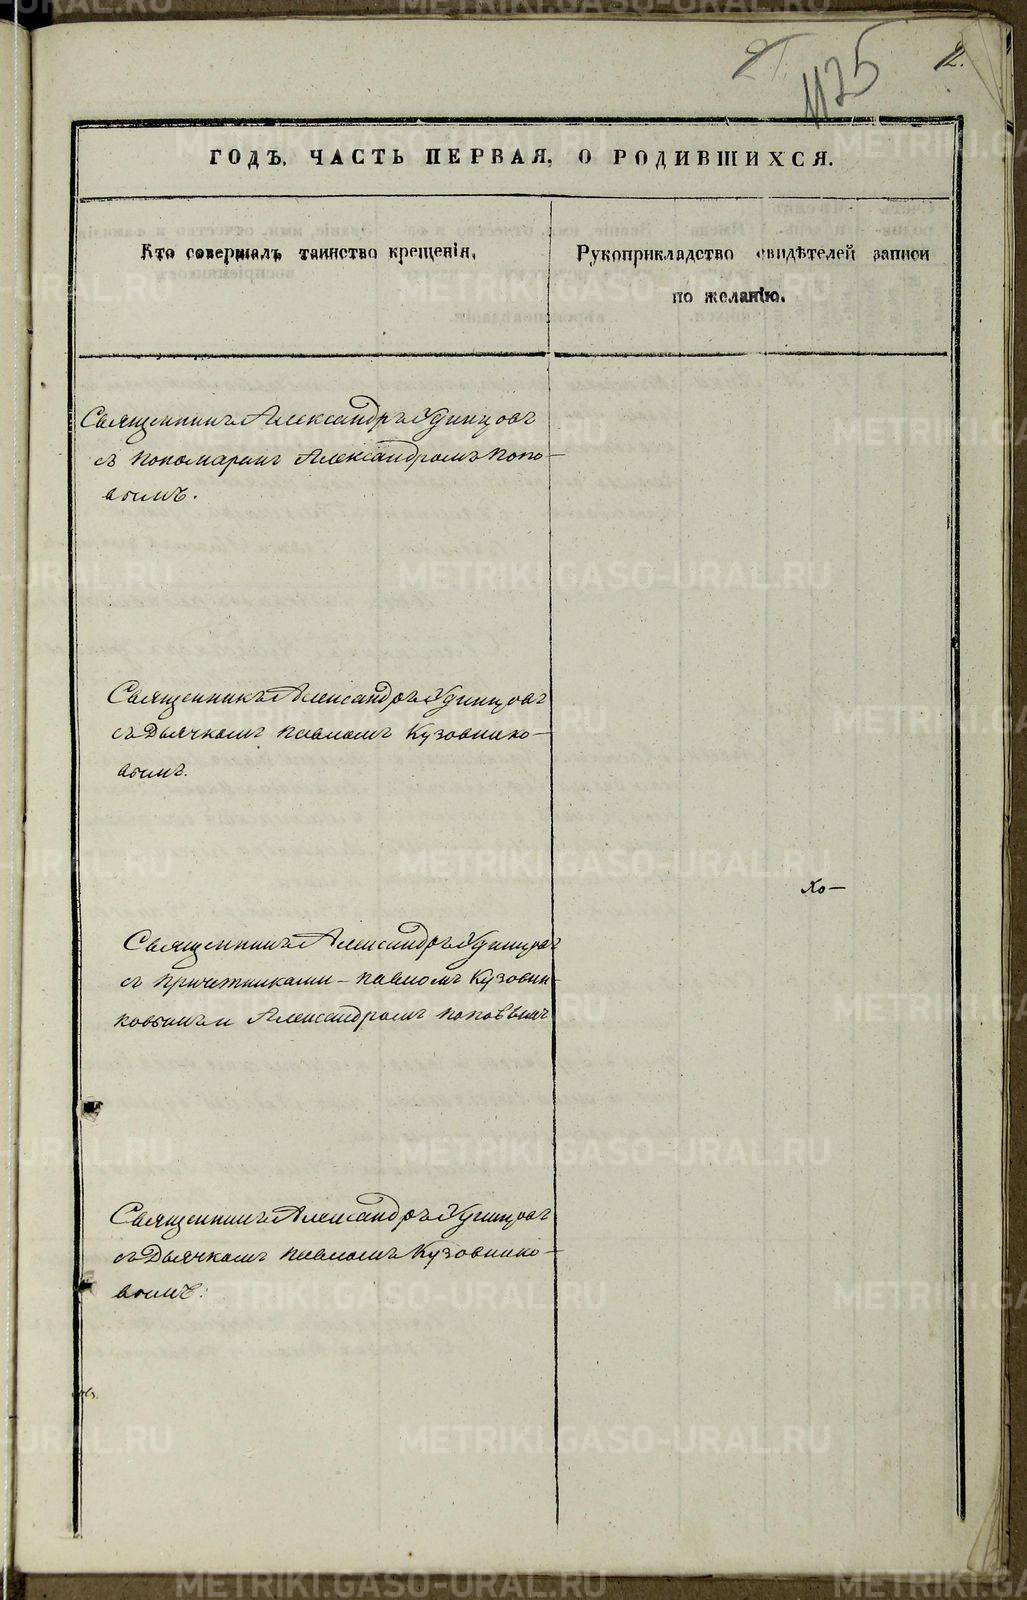 1125
2.
ГОДЪ, ЧАСТЬ ПЕРВАЯ, О РОДИВШИХСЯ.
Кто совершалъ таинство крещенія.
Рукоприкладство свидѣтелей записи
по желанію.
Священникъ Александръ Удинцовъ
съ пономаремъ Александромъ Попо-
вымъ.
Священникъ Александръ Удинцовъ
съ Дьячкомъ Павломъ Кузовнико-
вымъ.
Хо-
Священникъ Александръ Удинцовъ
съ причетниками - Павломъ Кузовни-
ковымъ и Александромъ Поповымъ
Священникъ Александръ Удинцовъ
съ Дьячкомъ Павломъ Кузовнико-
вымъ.
METRIKI.GASO-URAL.RU